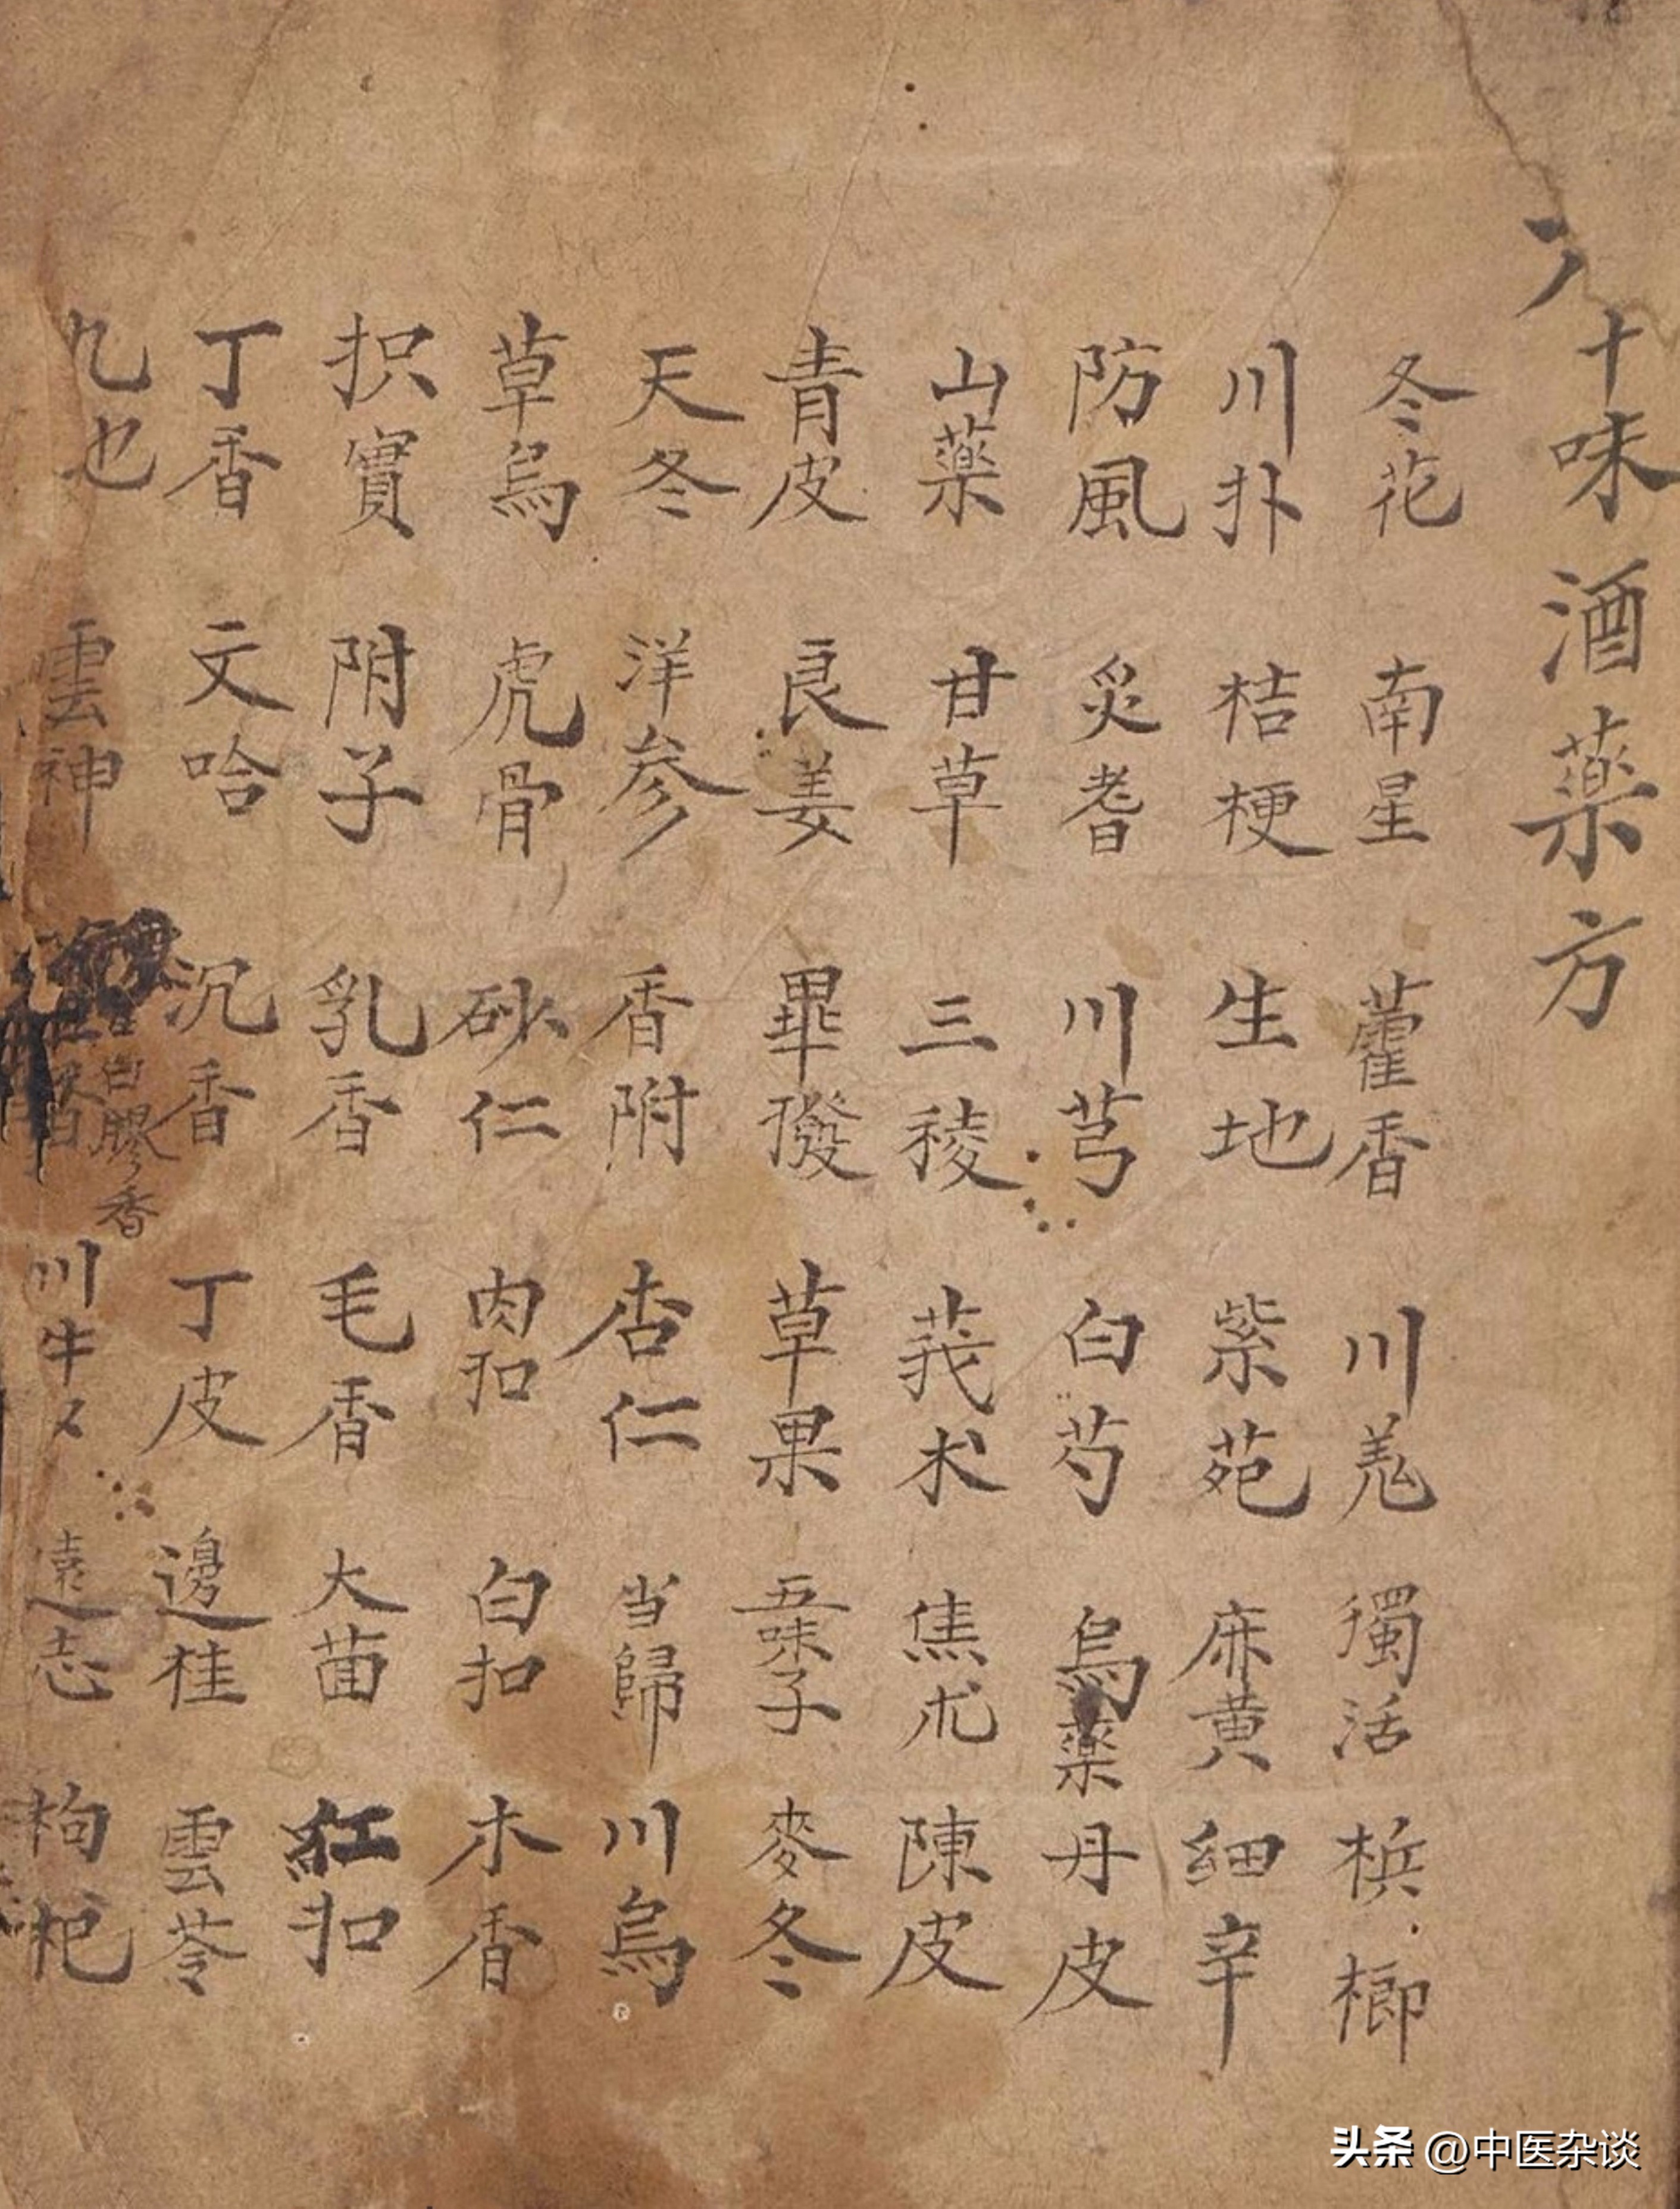 十味酒藥方
冬花 南星 藿香 川羌 獨活 梹榔
川扑 桔梗 生地 紫苑 麻黄 細辛
防風 炙耆 川芎 白芍 烏藥 丹皮
山藥 甘草 三稜 莪术 焦朮 陳皮
青皮 良姜 畢撥 草果 五味子 麥冬
天冬 洋参 香附 杏仁 当歸 川烏
草烏 虎骨 砂仁 肉扣 白扣 木香
抧實 附子 乳香 毛香 大茴 紅扣
丁香 文哈 沉香 丁皮 邊桂 雲苓
白膠香
乩也 雲神 川牛 遠志 枸杞
头条 @中医杂谈